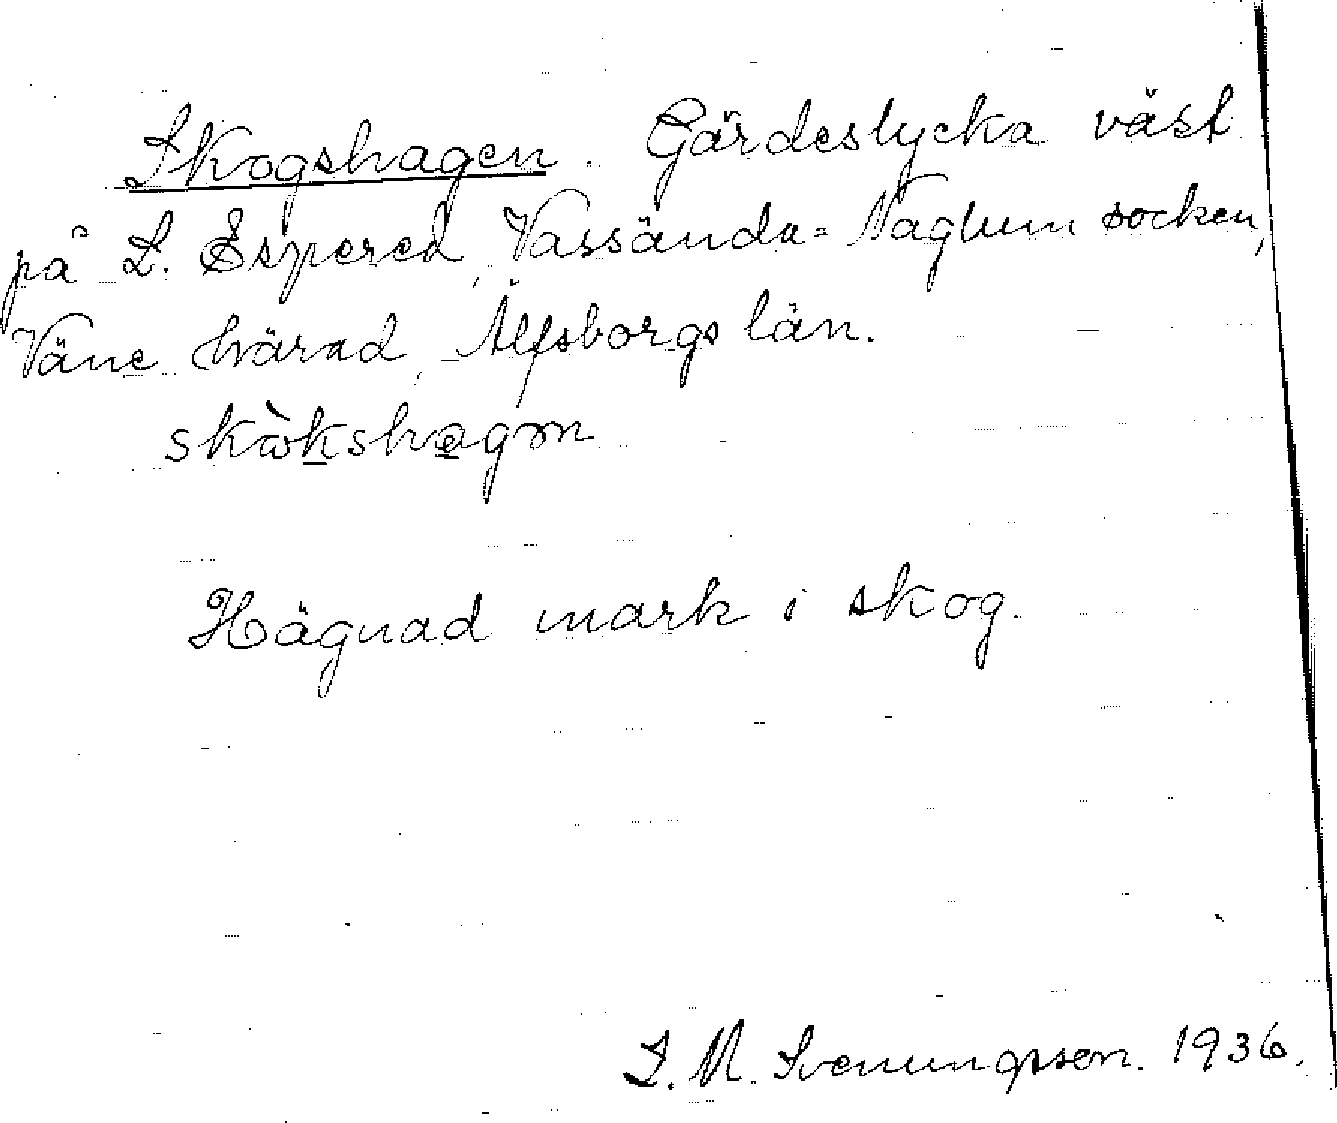 Skogshagen. Gärdeslycka väst
på L. Espered, Vassända-Naglum socken,
Väne härad, Älfsborgs län.
skòkshagɷn
Hägnad mark i skog.
S. M. Svenungsson. 1936.